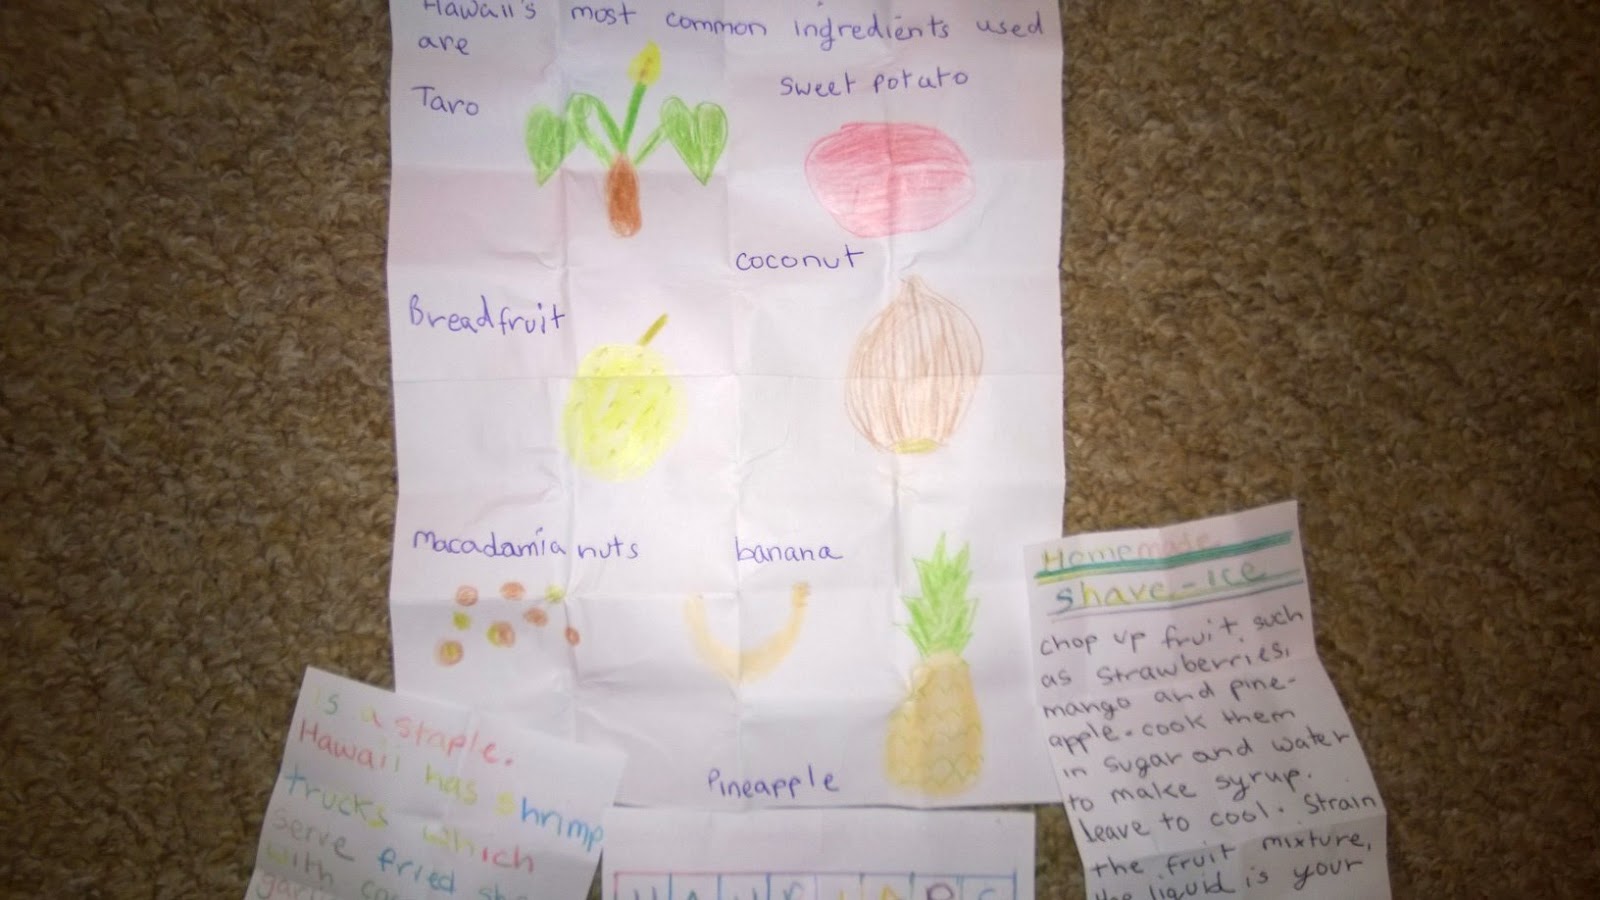 Hawaii's most common ingredients used
are
Taro
sweet potato
coconut
Breadfruit
Macadamia nuts
banana
Pineapple
is a staple.
Hawaii has shrimp
trucks which
serve fried
with
Homemade
shave-ice
chop up fruit such
as strawberries,
mango and pine-
apple. cook them
in sugar and water
to make syrup.
leave to cool. Strain
the fruit mixture,
the liquid is your